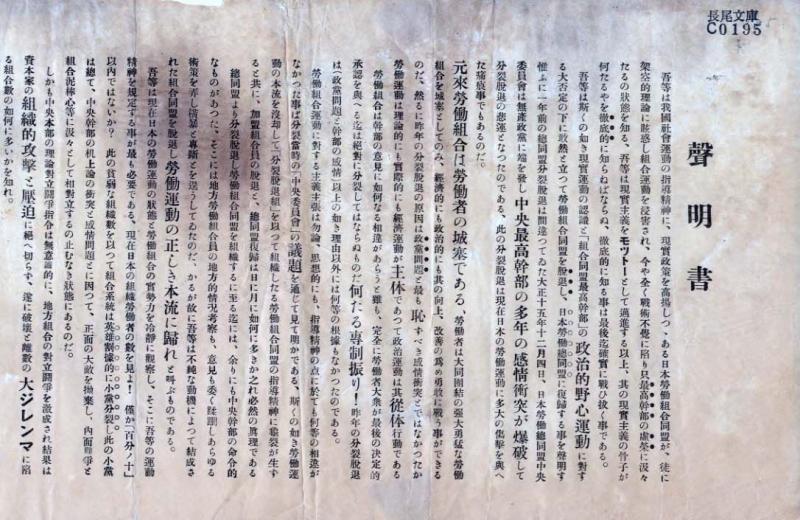 長尾文庫
C0195
聲明書
吾等は我國社會運動の指導精神に、現實政策を高揚しつゝある日本勞働組合同盟が、徒に
架空的理論に眩惑し組合運動を浸害され、今や全く戰術不覺に陷り只最高幹部の虚榮に汲々
たるの狀態を知る、吾等は現實主義をモツトーとして邁進する以上、其の現實主義の骨子が
何たるやを徹底的に知らねばならぬ、徹底的に知る事は最後迄確實に戰ひ拔く事である。
吾等は斯くの如き現實運動の認識と「組合同盟最高幹部」の政治的野心運動に對す
る大否定の下に敢然と立つて勞働組合同盟を脫退し、日本勞働總同盟に復歸する事を聲明す
惟ふに一年前の總同盟分裂脫退は間違つてゐた大正十五年十二月四日、日本勞働總同盟中央
委員會は無產政黨に端を發し中央最高幹部の多年の感情衝突が爆破して
分裂脫退の悲運となつたのである、此の分裂脫退は現在日本の勞働運動に多大の傷擊を與へ
た痛痕事でもあるのだ。
元來勞働組合は勞働者の城塞である、勞働者は大同團結の强大勇猛な勞働
組合を城塞としてのみ、經濟的にも政治的にも其の向上、改善の爲め勇敢に戰う事ができる
のだ、然るに昨年の分裂脫退の原因は政黨問題と最も恥すべき感情衝突とではなかつたか
勞働運動は理論的にも實際的にも經濟運動が主体であつて政治運動は其從体行動である
勞働組合は幹部の意見に如何なる相違があらうと雖も、完全に勞働者大衆が最後の決定的
承認を與へる迄は絕對に分裂してはならぬものだ何たる專制振り!昨年の分裂脫退
は(政黨問題と幹部の感情)以上の如き理由以外には何等の根據もなかつたのである。
勞働組合運動に對する主義主張は勿論、思想的にも、指導精神の点に於ても何等の相違が
なかつた事は分裂當時の「中央委員會」の議題を通じて見て明かである、斯くの如き勞働運
動の本流を沒却して「分裂脫退組」を以つて組織したる勞働組合同盟の指導精神に龜裂が生ず
ると共に、加盟組合員の脫退と、總同盟復歸は日に月に如何に多きか之れ必然の眞理である
總同盟より分裂脫退し勞働組合同盟を組織するに至る迄には、余りにも中央幹部の命令的
なものがあつた、そこには地方勞働組合員の地方的情況考察も、意見も委く蹂躙しあらゆる
術策を弄し橫暴と專斷とを逞うしてゐたのだ、かるが故に吾等は不純な動機によつて結成さ
れた組合同盟を脫退し勞働運動の正しき本流に歸れと叫ぶものである。
吾等は現在日本の勞働運動の狀態と勞働組合の實勢力を冷靜に觀察し、そこに吾等の運動
精神を規定する事が最も必要である、現在日本の組織勞働者の數を見よ!僅か「百分ノ十」
以内ではないか?此の貧弱な組織數を以つて組合系統は英雄割據的に小黨分裂し此の小黨
は總て、中央幹部の机上論の衝突と感情問題とに因つて、正面の大敵は拋棄し、内面鬪爭と
組合泥棒心等に汲々として相對立するの止むなき狀態にあるのだ。
しかも中央本部の理論對立鬪爭指令は無意識的に、地方組合の對立鬪爭を激成され結果は
資本家の組織的攻擊と壓迫に堪へ切らず、遂に破壞と離散の大ジレンマに陷
る組合數の如何に多いかを知れ。